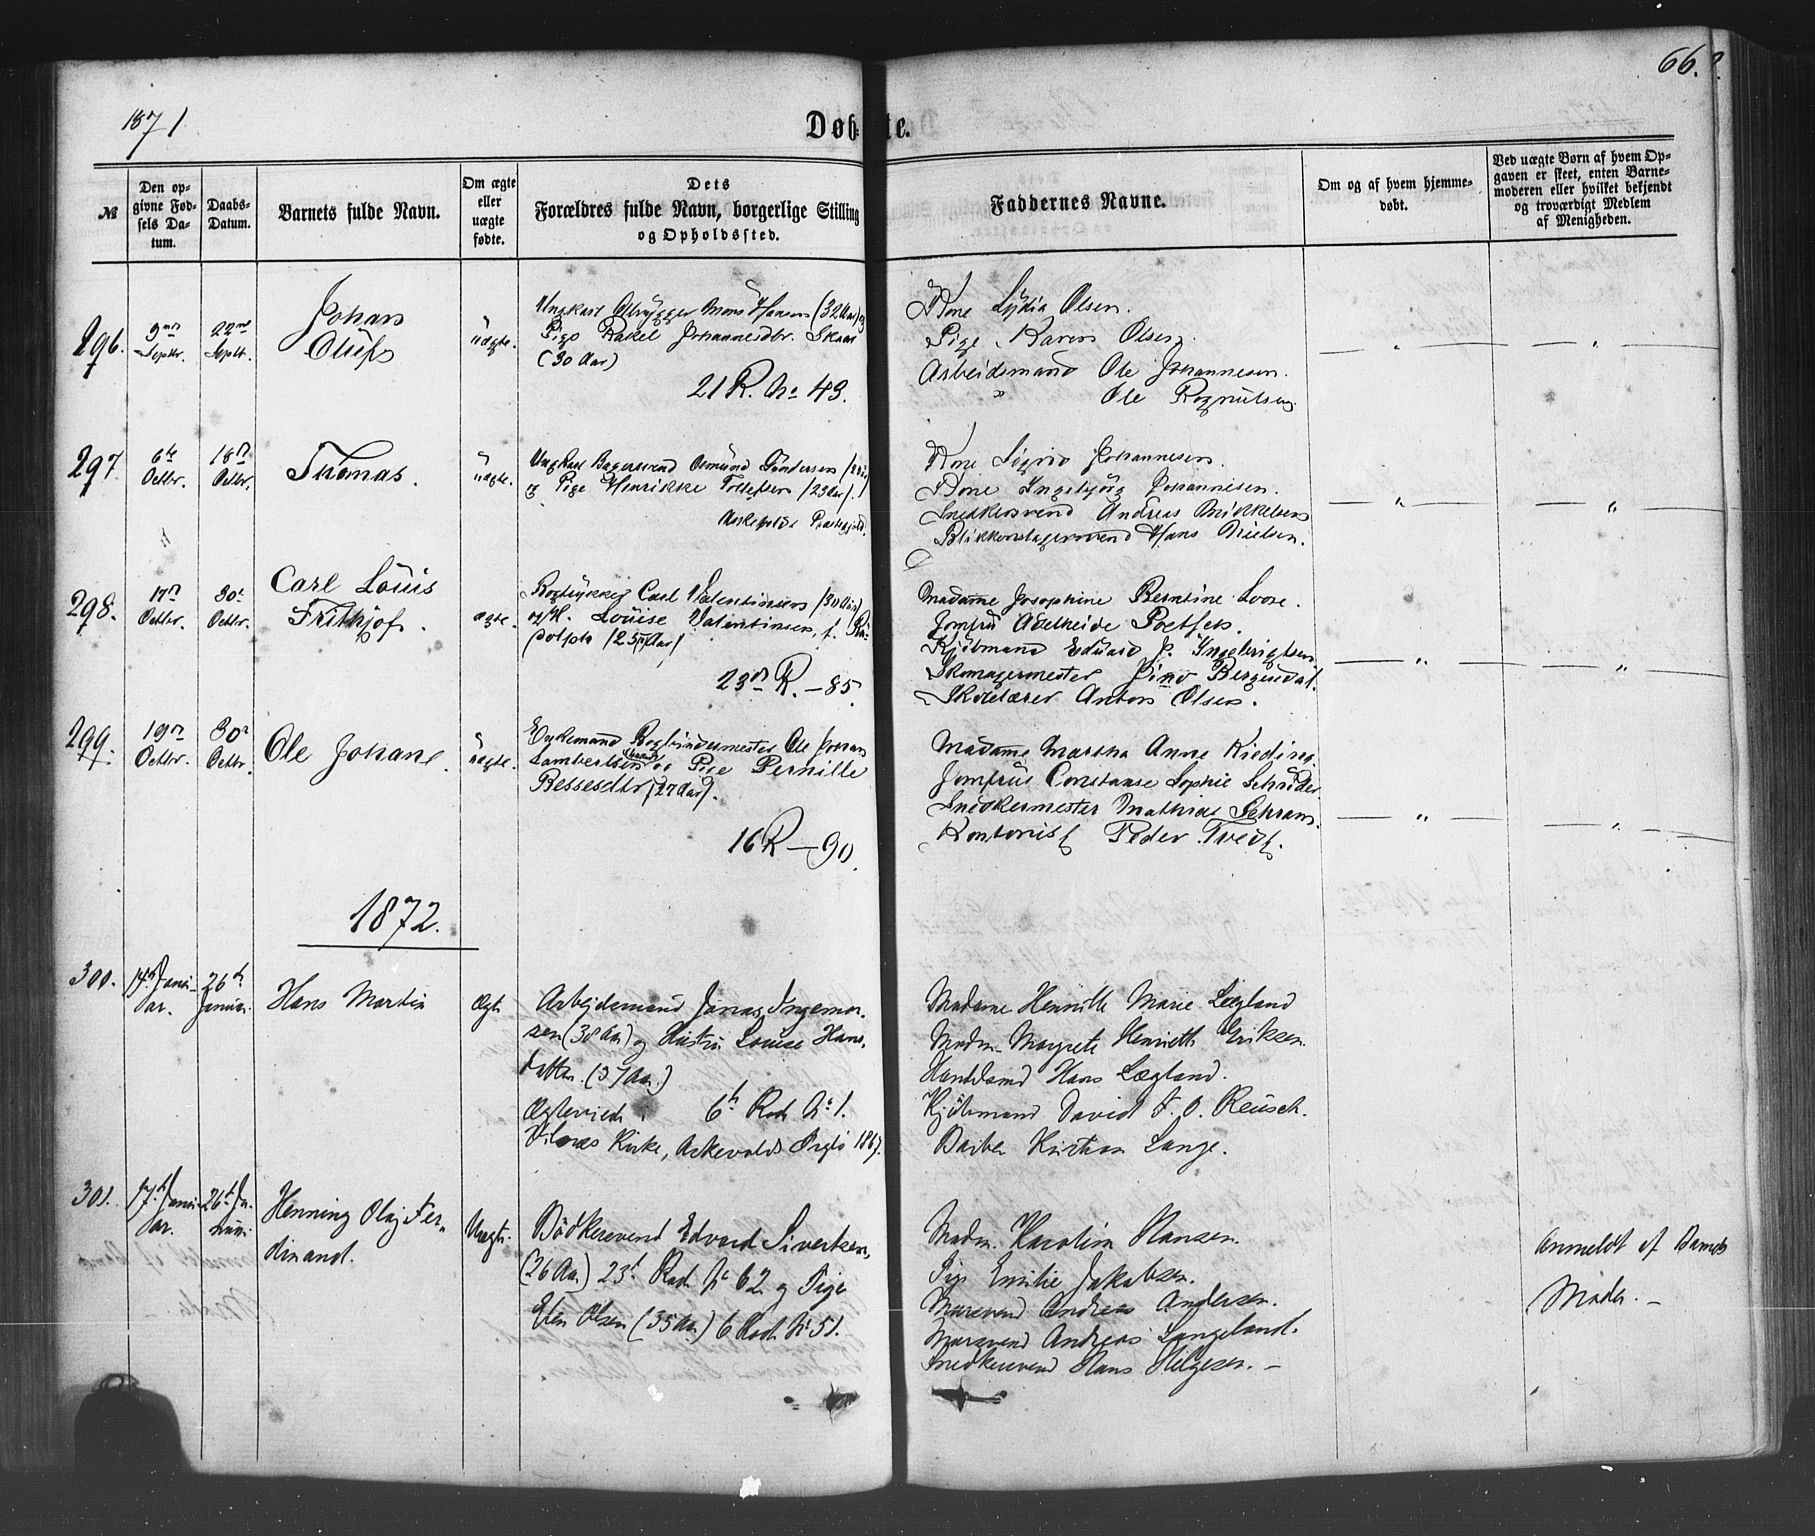 66.
1871
Døbte.
№
Den opgivne Fødsels Datum.
Daabs-Datum.
Barnets fulde Navn.
Om ægte eller uægte fødte.
Dets Forældres fulde Navn, borgerlige Stilling og Opholdssted.
Faddernes Navne.
Om og af hvem hjemmedøbt.
Ved uægte Børn af hvem Opgaven er skeet, enten Barnemoderen eller hvilket bekjendt og troværdigt Medlem af Menigheden.
296.
9de Septbr.
22de Septbr.
Johan
Oluf
uægte.
Ungkarl Mons Hansen (32 Aar) og
Pige Rakel Johannesdtr. Skaar
(30 Aar)
21 R. No 43.
Kone Lydia Olsen.
Pige Karen Olsen.
Arbeidsmand Ole Johannesen.
" Ole Rognulsen.
297.
6te Octbr.
18de Octbr.
Thomas.
uægte.
Ungkarl Bagersvend Osmund Tendersen
og Pige Henrikke Tollefsen (23 Aar).
Kone Sigrid Johannesen.
Kone Ingebjørg Johannesen.
Snedkersvend Andreas Mikkelsen
Blikkenslagersvend Hans Nielsen.
298.
17de Octbr.
30te Octbr.
Carl Louis
Frithjof.
ægte.
Bogtrykker Carl Valentinsen (30 Aar)
og H. Louise Valentinsen, f. Ru-
dolph (25 Aar)
23de R. – 85.
Madamme Josephine Berntine Loose.
Jomfru Adelheide Poetsch.
Kjøbmand Eduard J. Ingebrigtsen
Skomagermester Bergendal.
Skolelærer Anton Olsen.
299.
19de Octbr.
30te Octbr.
Ole Johan
uægte.
Enkemand Bogbindermester Ole Johan
Lambertsen og Pige Pernille
Bessesdtr (27 Aar).
16 R – 90.
Madamme Martha Anne Kieding.
Jomfru Constanse Sophie Schrøder
Snedkermester Mathias Schram.
Kontorist Peder Tvedt.
1872.
300.
14de Janu-
ar.
26de
Januar
Hans Martin
Ægte
Arbeidsmand Jonas Ingemor-
sen (38 Aar) og Hustru Louise Hans-
datter (37 Aar.)
Ægteviede 6te Rode No 1.
Kirke, Askevolds Prgld 1867.
Madame Henriette Marie Lægland
Madm. Margrete Henriette Eriksen
Hans Lægland.
Kjøbmand David F. O. Reusch.
Barber Kristian Lange.
301.
17de Janu-
ar.
26de Ja-
nuar
Henning Olaj Fer-
dinand.
Uægte.
Bødkersvend Edvard Sivertsen,
(26 Aar) 23de Rode No 62 og Pige
Elen Olsen (35 Aar) 6 Rode No 51.
Madm. Karoline Hansen.
Pige Emilie Jakobsen.
Murersvend Andreas Andersen.
Murersvend Andreas Langeland.
Snedkersvend Hans Helgesen. –
Anmeldt af Barnets
Moder. –